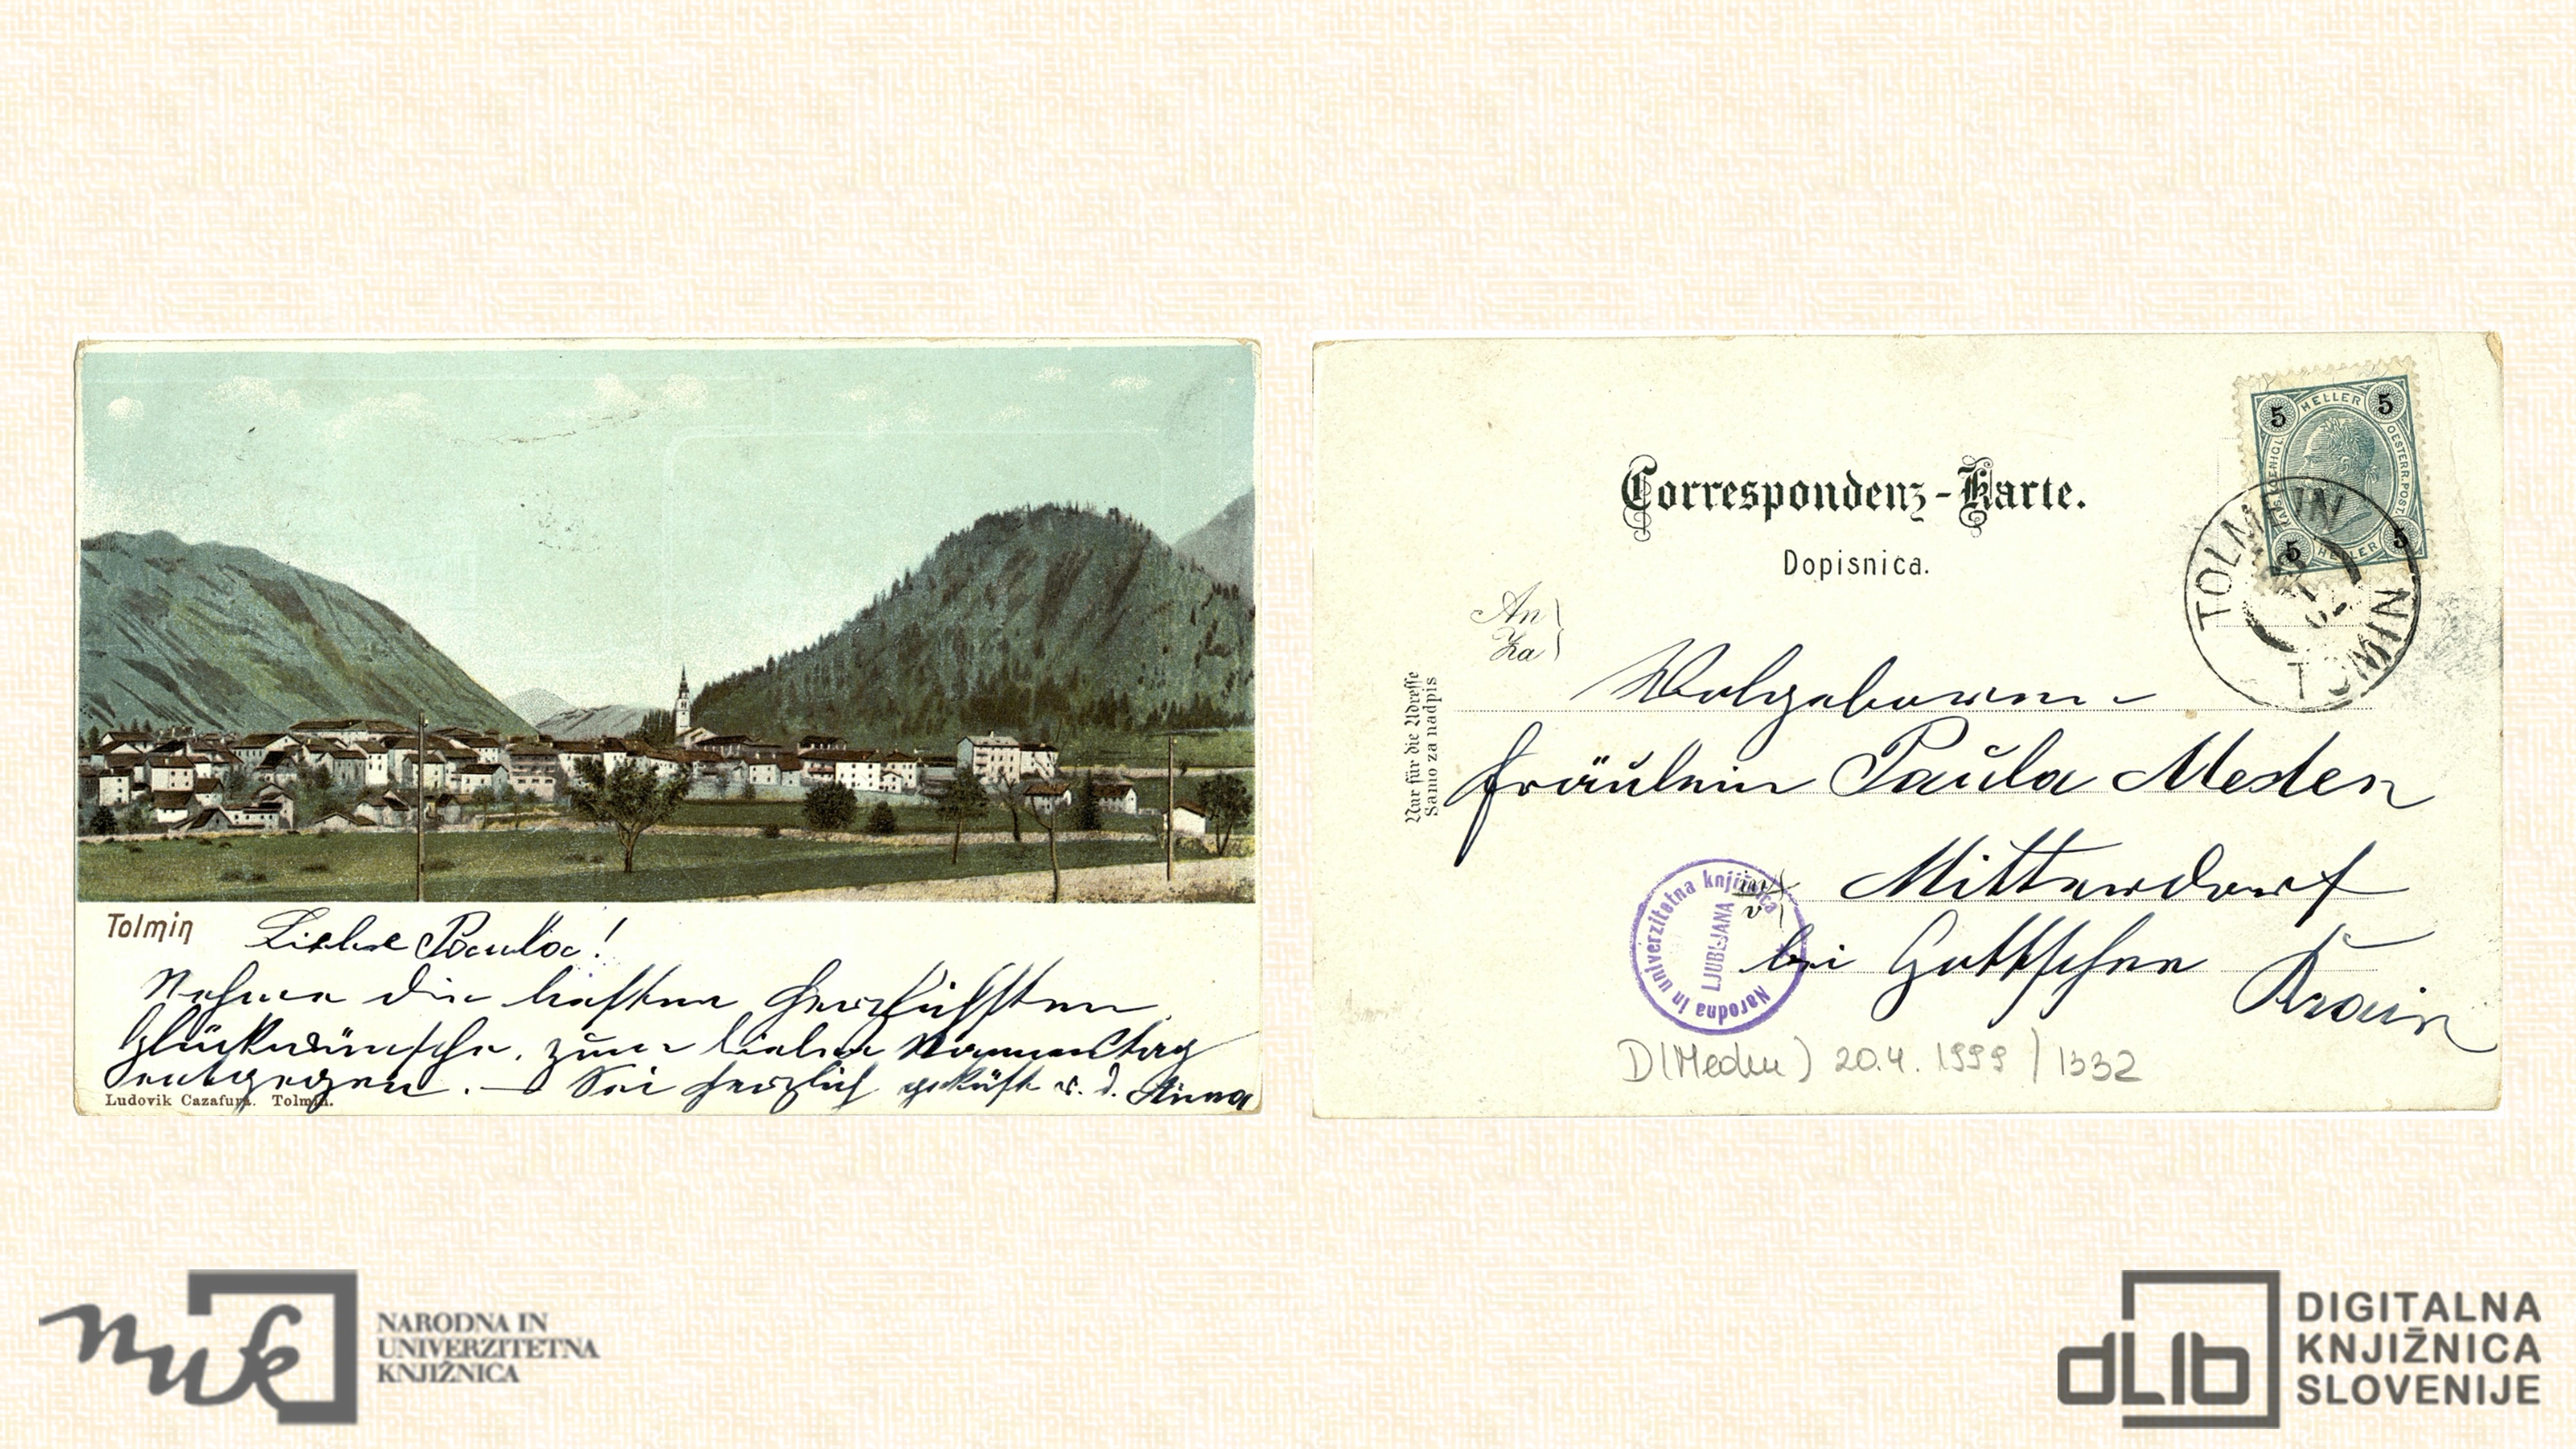 Tolmin
Liebe Paula!
Nehme die besten herzlichsten
Glückwünsche, zum lieben Namenstag
entgegen. — Sei herzlich geküßt v. d. Anna
Ludovik Cazafura. Tolmin.
Correspondenz-Karte.
Dopisnica.
An
Za
Nur für die Adresse
Samo za nadpis
Wolgeboren
Fräulein Paula Meden
in
v
Mitterdorf
bei Gottschee
Krain
5 HELLER 5
KAIS. KOENIGL. OESTERR. POST.
5 HELLER 5
TOLMIN
TOLMIN
Narodna in univerzitetna knjižnica
LJUBLJANA
D(Meden) 20.4.1999/1332
nuk
NARODNA IN
UNIVERZITETNA
KNJIŽNICA
dLib
DIGITALNA
KNJIŽNICA
SLOVENIJE